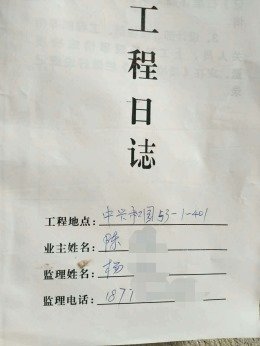 工程日誌
工程地点：中兴和园53-1-401
业主姓名：陈
监理姓名：杨
监理电话：187